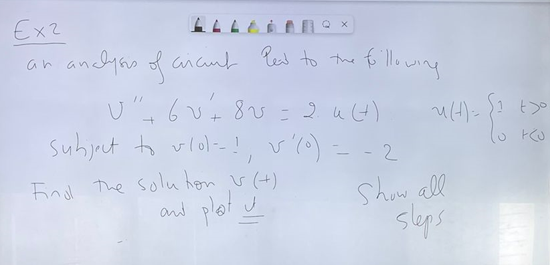 Ex2
an analysis of circuit lead to the following
v'' + 6v' + 8v = 2 u(t) u(t) = { 1 t>0
0 t<0
subject to v(0) = 1, v'(0) = -2
Find the solution v(t) Show all
and plot v steps